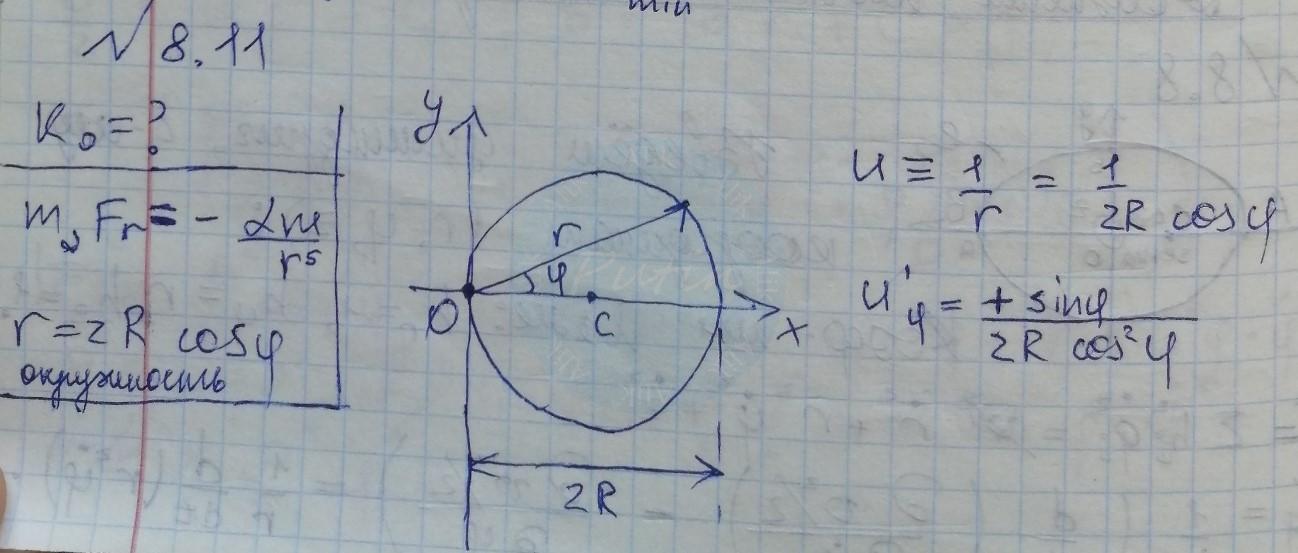 min
№ 8.11
K₀ = ?
m, Fr = - αm/r⁵
r = 2R cosφ
окружность
y
r
φ
O
C
x
2R
u ≡ 1/r = 1/(2R cosφ)
u'φ = + sinφ/(2R cos²φ)